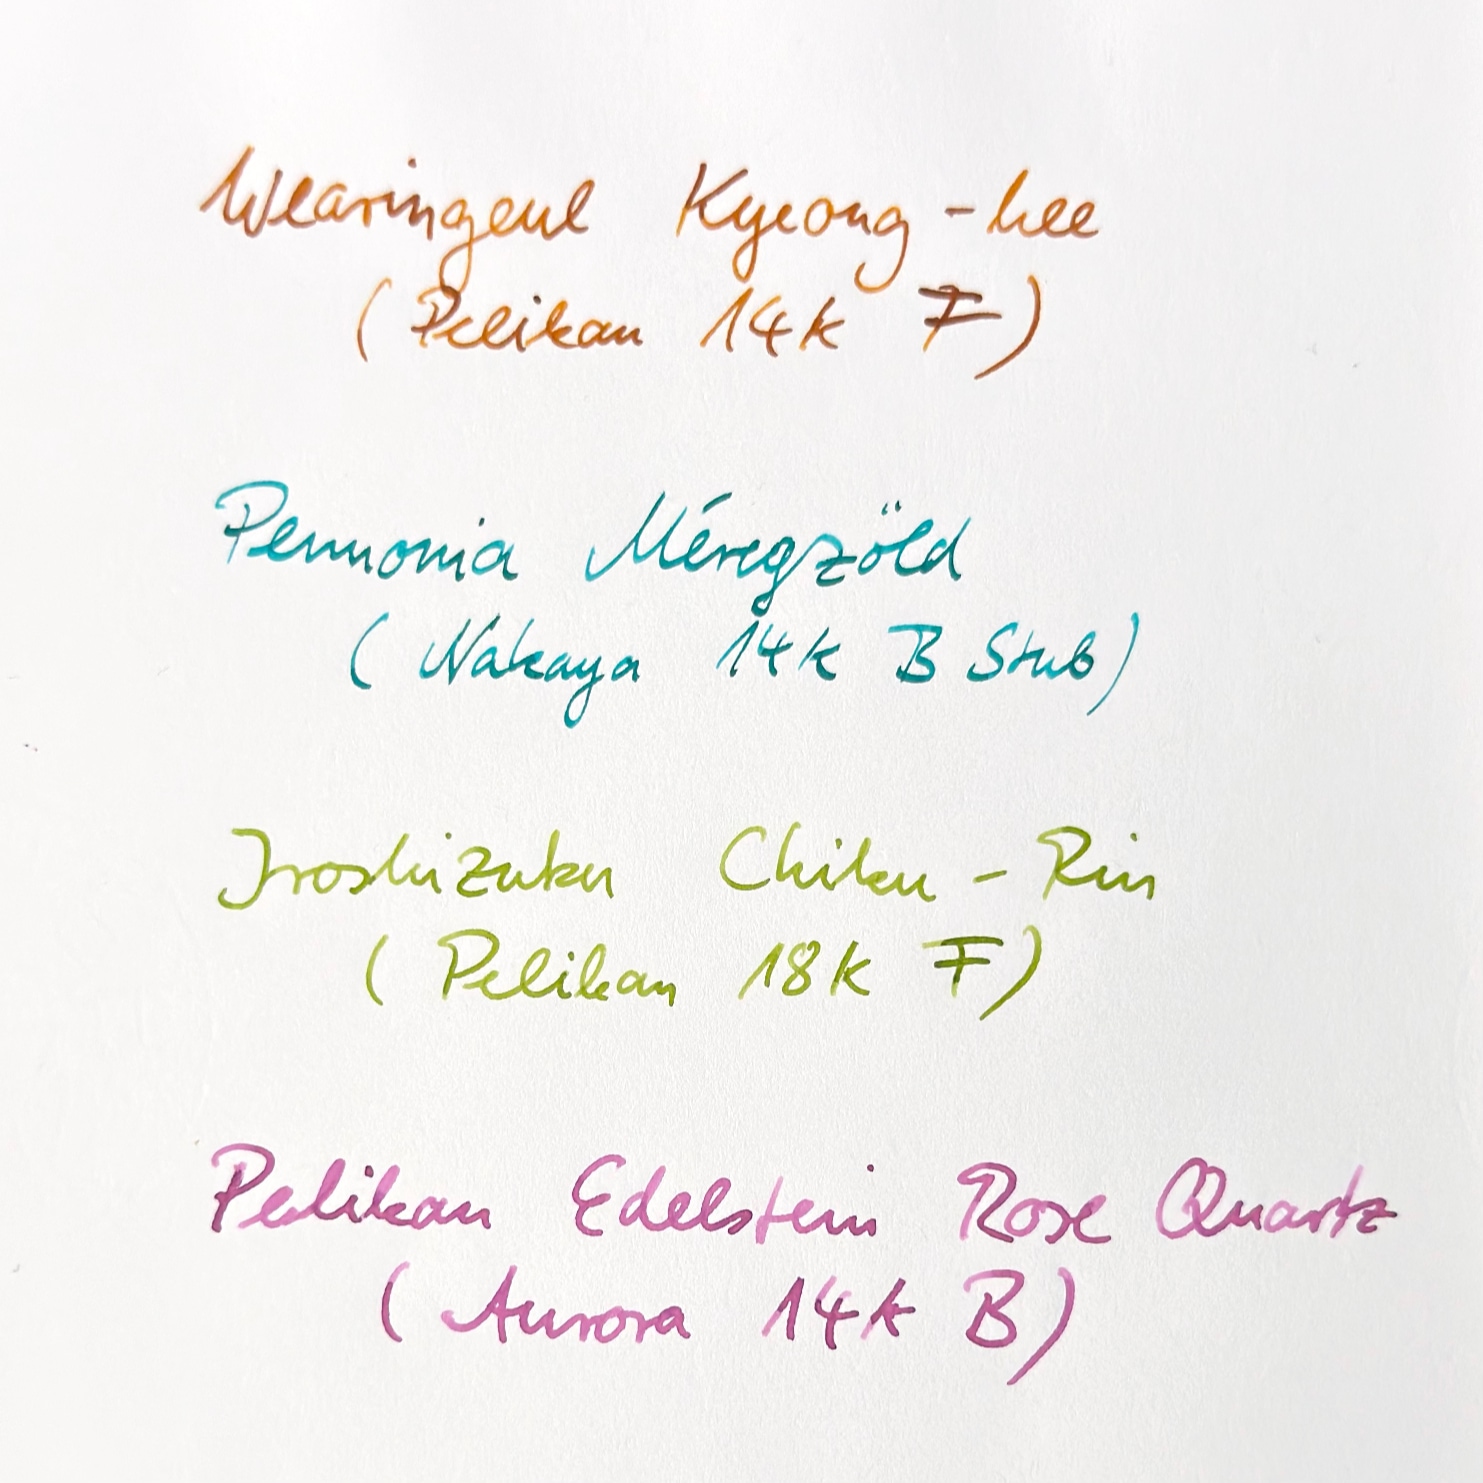 Wearingeul Kyeong-hee
(Pelikan 14k F)
Pennonia Méregzöld
(Nakaya 14k B Stub)
Iroshizuku Chiku-Rin
(Pelikan 18k F)
Pelikan Edelstein Rose Quartz
(Aurora 14k B)